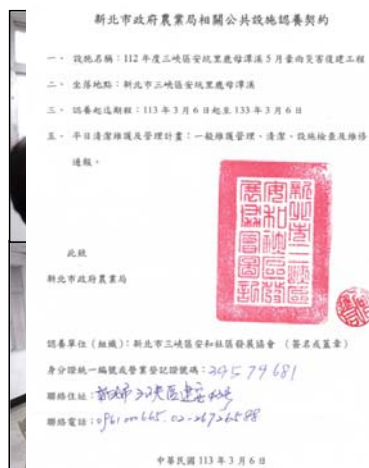 新北市政府農業局相關公共設施認養契約
一、設施名稱：112 年度三峽區安坑里鹿母潭溪 5 月豪雨災害復建工程
二、坐落地點：新北市三峽區安坑里鹿母潭溪
三、認養起迄期程：113 年 3 月 6 日起至 133 年 3 月 6 日
五、平日清潔維護及管理計畫：一般維護管理、清潔、設施檢查及維修
通報。
新北市三峽區
安和社區發
展協會圖記
此致
新北市政府農業局
認養單位（組織）：新北市三峽區安和社區發展協會 （簽名或蓋章）
身分證統一編號或營業登記證號碼：34579681
聯絡住址：新北市三峽區建安
聯絡電話：02-26726588
中華民國 113 年 3 月 6 日